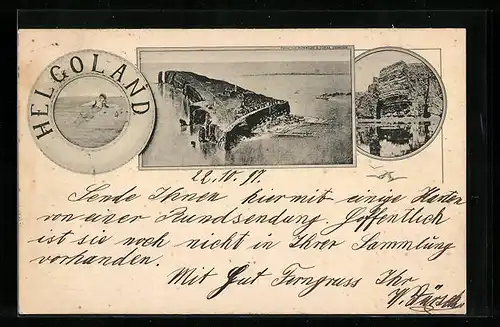 HELGOLAND
22.10.97.
Sende Ihnen hiermit einige Karten
von einer Rundsendung. Hoffentlich
ist sie noch nicht in Ihrer Sammlung
vorhanden.
Mit Gut Ferngruss Ihr
W.